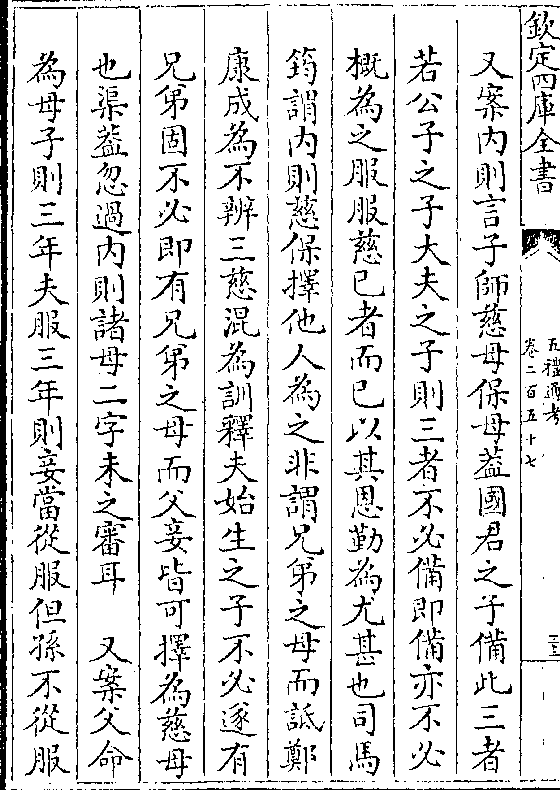 欽定四庫全書
五禮通考
卷二百五十七
又案内則言子師慈母保母葢國君之子備此三者
若公子之子大夫之子則三者不必備即備亦不必
概為之服服慈已者而已以其恩勤為尤甚也司馬
筠謂内則慈保擇他人為之非謂兄弟之母而詆鄭
康成為不辨三慈混為訓釋夫始生之子不必遂有
兄弟固不必即有兄弟之母而父妾皆可擇為慈母
也渠葢忽過内則諸母二字未之審耳　又案父命
為母子則三年夫服三年則妾當從服但孫不從服